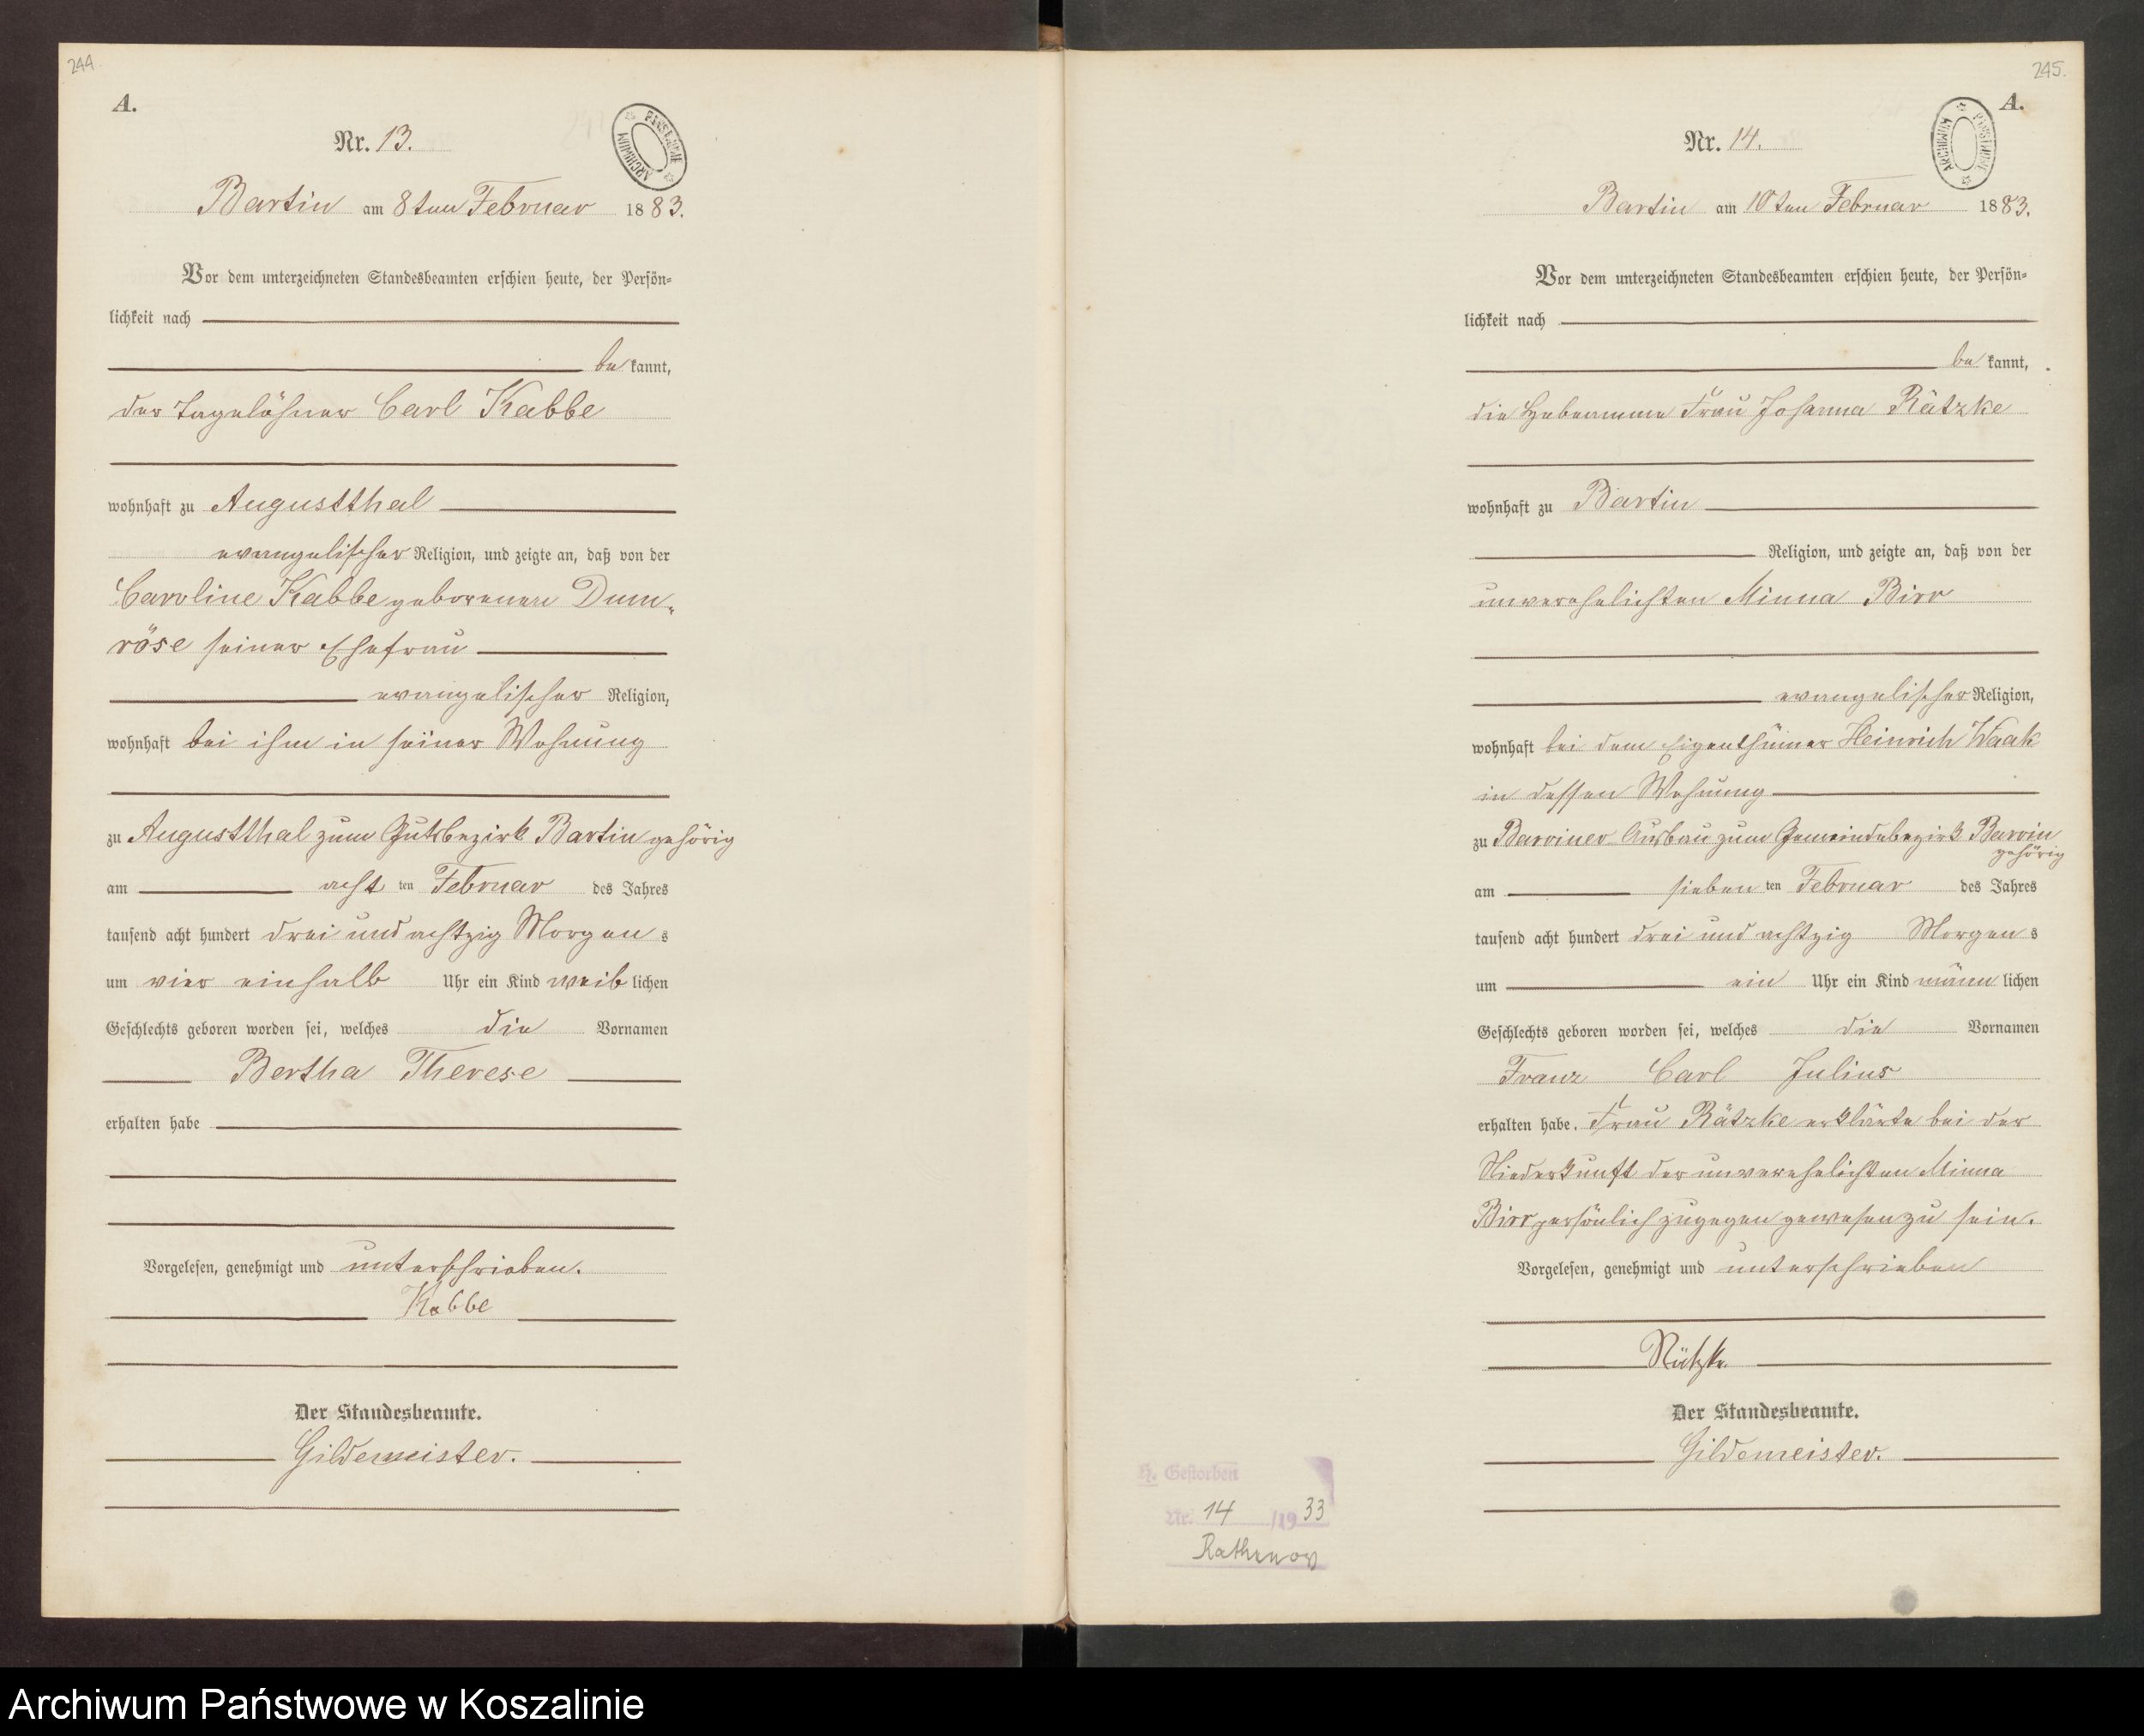 244.
A.
Nr. 13.
ARCHIWUM PAŃSTWOWE
Bartin am 8ten Februar 1883.
Vor dem unterzeichneten Standesbeamten erschien heute, der Persön=
lichkeit nach
be kannt,
der Tagelöhner Carl Kabbe
wohnhaft zu Augustthal
evangelischer Religion, und zeigte an, daß von der
Caroline Kabbe geborenen Dum=
röse seiner Ehefrau
evangelischer Religion,
wohnhaft bei ihm in seiner Wohnung
zu Augustthal zum Gutsbezirk Bartin gehörig
am acht ten Februar des Jahres
tausend acht hundert drei und achtzig Morgen s
um vier einhalb Uhr ein Kind weib lichen
Geschlechts geboren worden sei, welches die Vornamen
Bertha Therese
erhalten habe
Vorgelesen, genehmigt und unterschrieben.
Kabbe
Der Standesbeamte.
Gildemeister.
245.
A.
Nr. 14.
ARCHIWUM PAŃSTWOWE
Bartin am 10ten Februar 1883.
Vor dem unterzeichneten Standesbeamten erschien heute, der Persön=
lichkeit nach
be kannt,
die Hebeamme Frau Johanna Rätzke
wohnhaft zu Bartin
Religion, und zeigte an, daß von der
unverehelichten Minna Birr
evangelischer Religion,
wohnhaft bei dem Eigenthümer Heinrich Waak
in dessen Wohnung
zu Barviner Ausbau zum Gemeindebezirk Barvin
gehörig
am sieben ten Februar des Jahres
tausend acht hundert drei und achtzig Morgen s
um ein Uhr ein Kind männ lichen
Geschlechts geboren worden sei, welches die Vornamen
Franz Carl Julius
erhalten habe. Frau Rätzke erklärte bei der
Niederkunft der unverehelichten Minna
Birr persönlich zugegen gewesen zu sein.
Vorgelesen, genehmigt und unterschrieben
Rätzke.
Der Standesbeamte.
Gildemeister.
H. Gestorben
Nr. 14 /1933
Rathenow
Archiwum Państwowe w Koszalinie